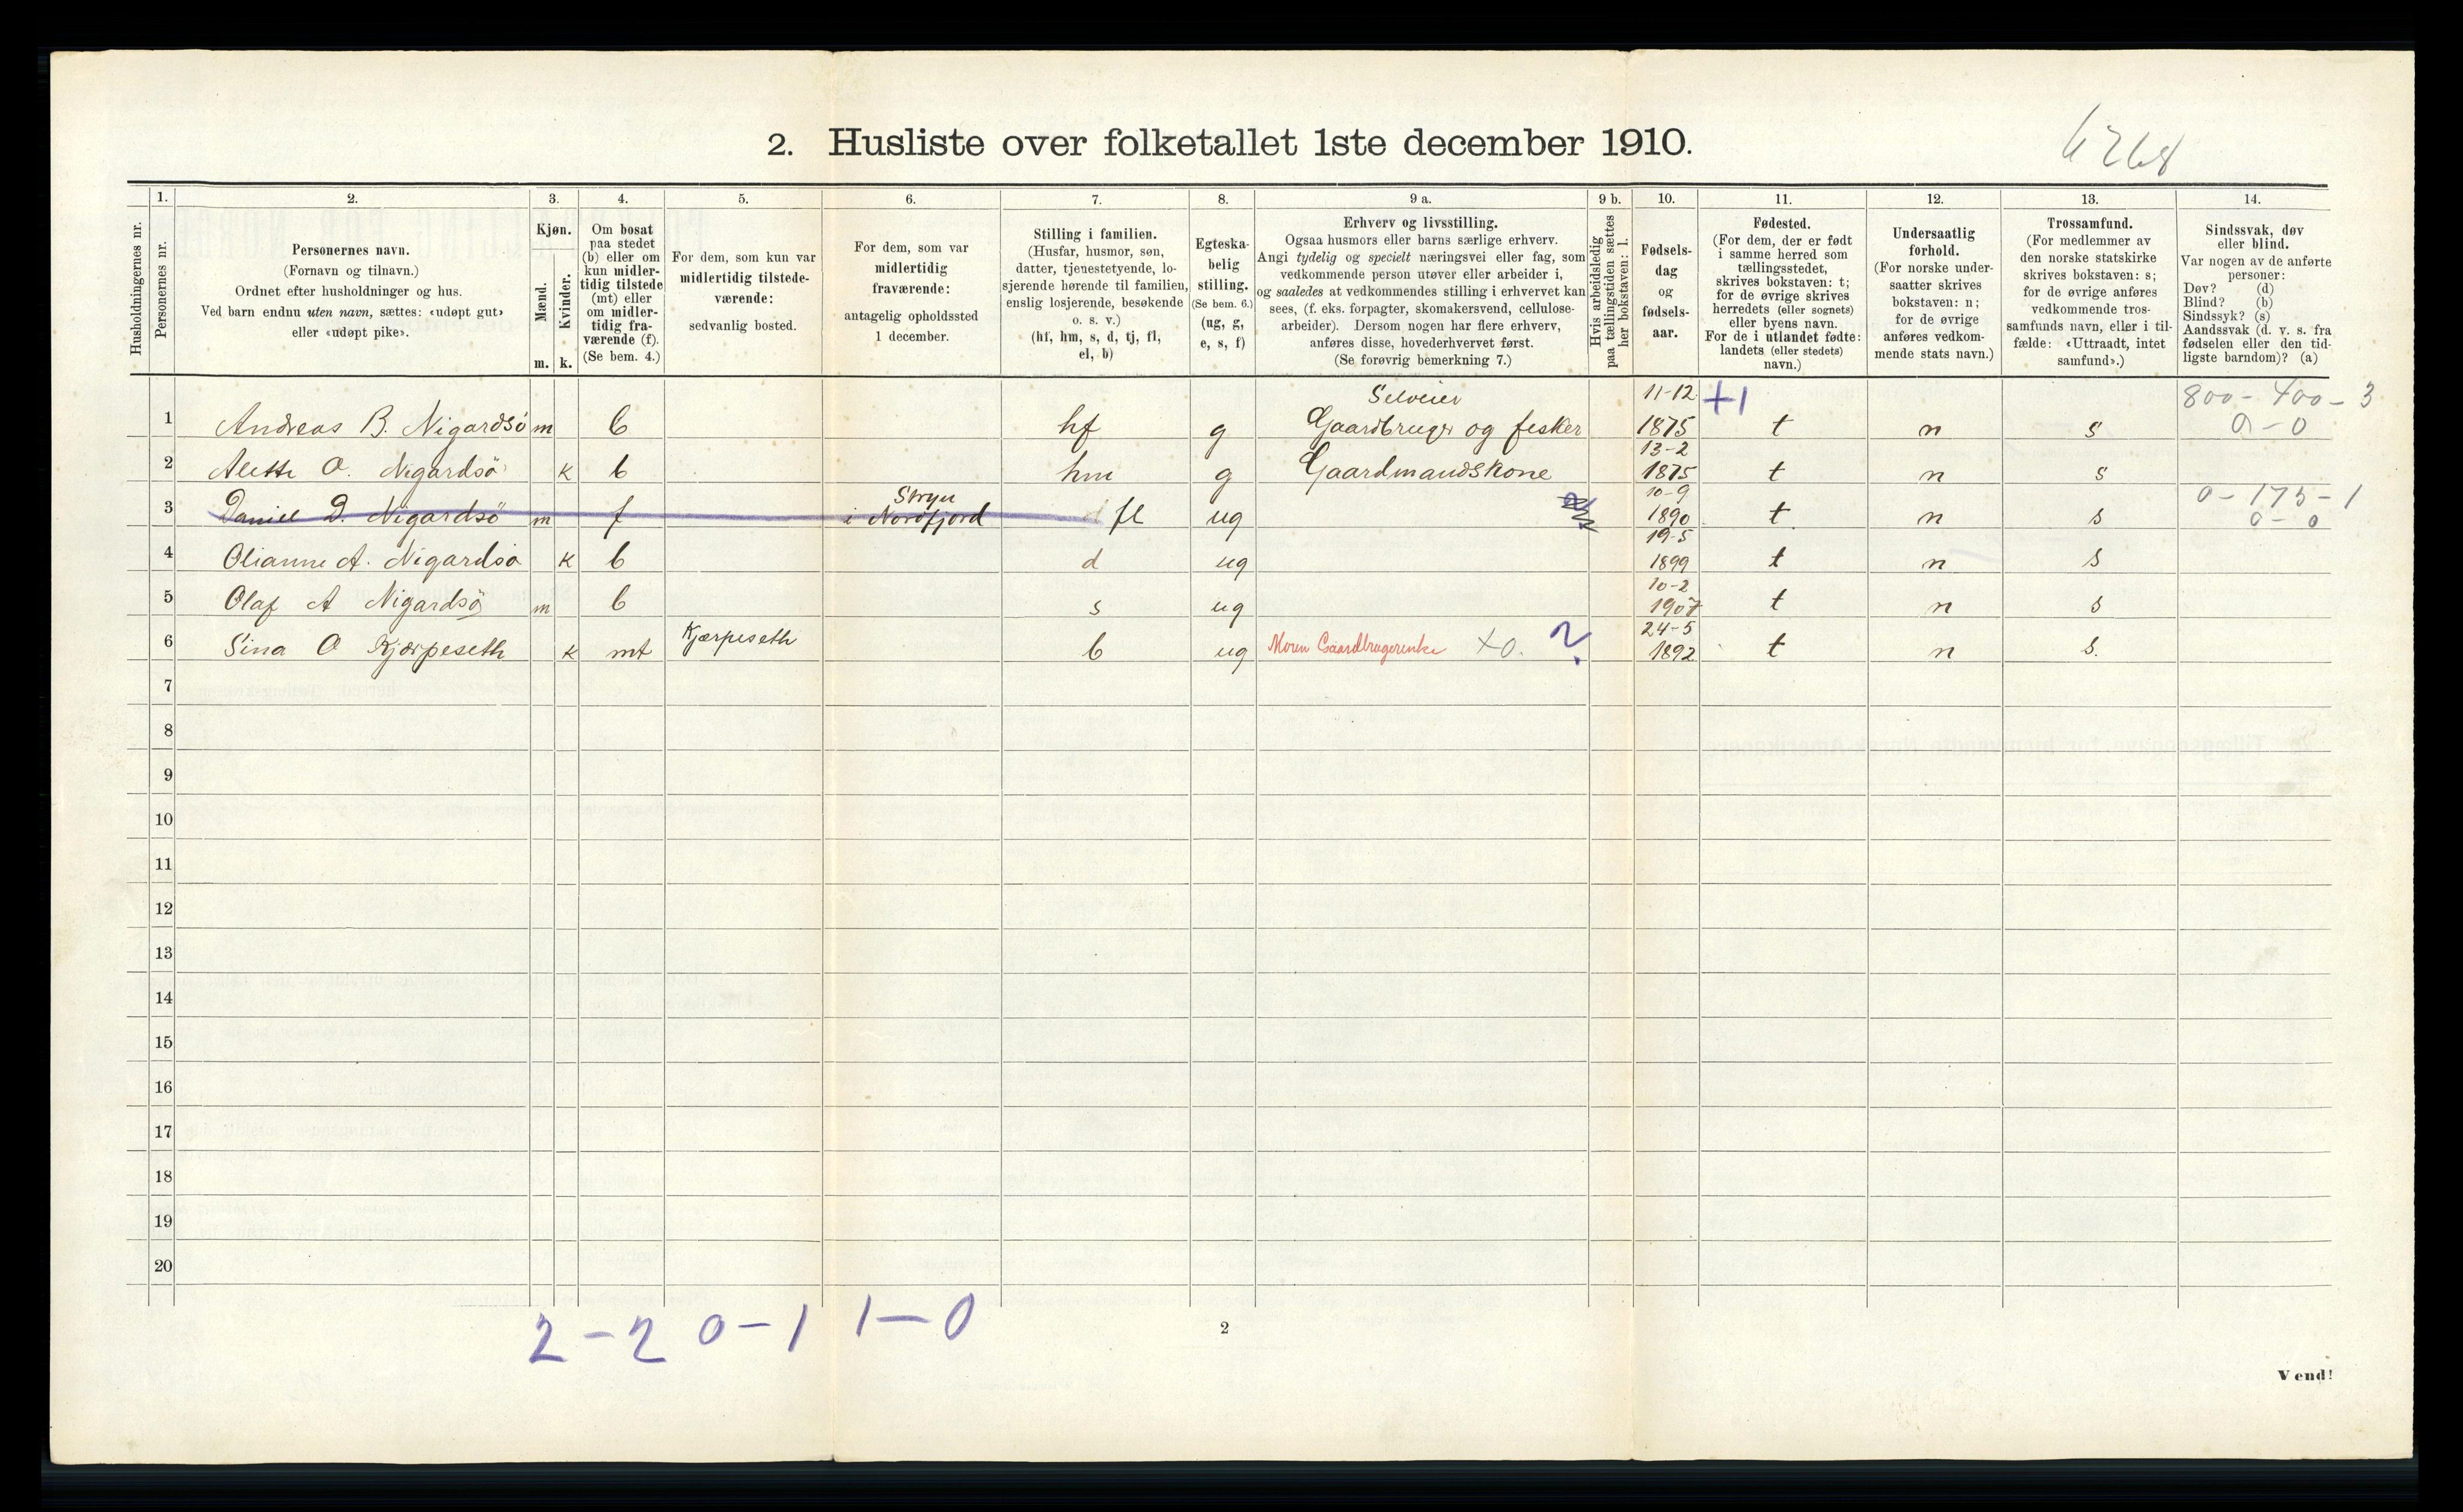 2. Husliste over folketallet 1ste december 1910.
6268
Husholdningernes nr.
1.
Personernes nr.
2.
Personernes navn.
(Fornavn og tilnavn.)
Ordnet efter husholdninger og hus.
Ved barn endnu uten navn, sættes: «udøpt gut»
eller «udøpt pike».
3.
Kjøn.
Mænd.
Kvinder.
m. k.
4.
Om bosat
paa stedet
(b) eller om
kun midler-
tidig tilstede
(mt) eller
om midler-
tidig fra-
værende (f).
(Se bem. 4.)
5.
For dem, som kun var
midlertidig tilstede-
værende:
sedvanlig bosted.
6.
For dem, som var
midlertidig
fraværende:
antagelig opholdssted
1 december.
7.
Stilling i familien.
(Husfar, husmor, søn,
datter, tjenestetyende, lo-
sjerende hørende til familien,
enslig losjerende, besøkende
o. s. v.)
(hf, hm, s, d, tj, fl,
el, b)
8.
Egteska-
belig
stilling.
(Se bem. 6.)
(ug, g,
e, s, f)
9 a.
Erhverv og livsstilling.
Ogsaa husmors eller barns særlige erhverv.
Angi tydelig og specielt næringsvei eller fag, som
vedkommende person utøver eller arbeider i,
og saaledes at vedkommendes stilling i erhvervet kan
sees, (f. eks. forpagter, skomakersvend, cellulose-
arbeider). Dersom nogen har flere erhverv,
anføres disse, hovederhvervet først.
(Se forøvrig bemerkning 7.)
9 b.
Hvis arbeidsledig
paa tællingstiden sættes
her bokstaven: l.
10.
Fødsels-
dag
og
fødsels-
aar.
11.
Fødested.
(For dem, der er født
i samme herred som
tællingsstedet,
skrives bokstaven: t;
for de øvrige skrives
herredets (eller sognets)
eller byens navn.
For de i utlandet fødte:
landets (eller stedets)
navn.)
12.
Undersaatlig
forhold.
(For norske under-
saatter skrives
bokstaven: n;
for de øvrige
anføres vedkom-
mende stats navn.)
13.
Trossamfund.
(For medlemmer av
den norske statskirke
skrives bokstaven: s;
for de øvrige anføres
vedkommende tros-
samfunds navn, eller i til-
fælde: «Uttraadt, intet
samfund».)
14.
Sindssvak, døv
eller blind.
Var nogen av de anførte
personer:
Døv? (d)
Blind? (b)
Sindssyk? (s)
Aandssvak (d. v. s. fra
fødselen eller den tid-
ligste barndom)? (a)
Selveier 11-12 +1 800-400-3
1 Andreas B. Nigardsö m b hf g Gaardbruger og fisker 1875 t n s 0-0
13-2
2 Alette O. Nigardsö k b hm g Gaardmandskone 1875 t n s
Stryn 10-9 0-175-1
3 Daniel D. Nigardsö m f i Nordfjord fl ug 1890 t n s 0-0
19-5
4 Olianne A. Nigardsö k b d ug 1899 t n s
10-2
5 Olaf A Nigardsö m b s ug 1907 t n s
Kjærpeseth 24-5
6 Sina O Kjærpeseth k mt b ug Moren Gaardbrugerenke +0. ? 1892 t n s.
7
8
9
10
11
12
13
14
15
16
17
18
19
20
2-2 0-1 1-0
2
Vend!